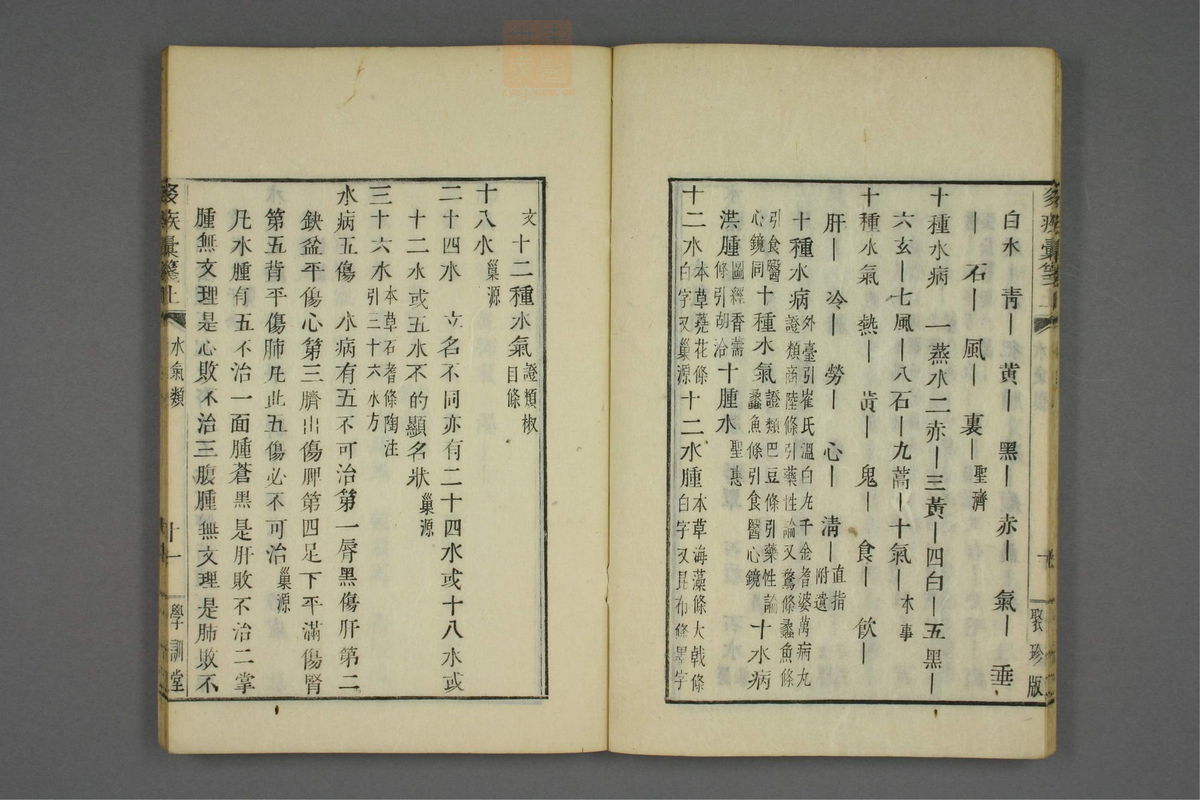 白水　青｜黃｜　黑｜赤｜氣｜　垂
｜　石｜風｜　裏｜聖濟
十種水病　一蒸水二赤｜三黃｜四白｜五黑｜
六玄｜七風｜八石｜九蒿｜十氣｜本事
十種水氣　熱｜　黃｜　鬼｜　食｜　飲｜
肝｜　冷｜　勞｜　心｜　淸｜直指附遺
十種水病外臺引崔氏溫白丸千金耆婆萬病丸證類商陸條引藥性論又鶩條蠡魚條
引食醫心鏡同十種水氣證類巴豆條引藥性論蠡魚條引食醫心鏡十水病
洪腫圖經香薷條引胡洽十腫水聖惠
十二水本草蕘花條白字又巢源十二水腫本草海藻條大戟條白字又昆布條墨字
聚珍版
文十二種水氣證類椒目條
十八水巢源
二十四水　立名不同亦有二十四水或十八水或
十二水或五水不的顯名狀巢源
三十六水本草石耆條陶注引三十六水方
水病五傷　水病有五不可治第一脣黑傷肝第二
鈌盆平傷心第三臍出傷脾第四足下平滿傷腎
第五背平傷肺凡此五傷必不可治巢源
凡水腫有五不治一面腫蒼黑是肝敗不治二掌
腫無文理是心敗不治三腹腫無文理是肺敗不
彙箋上　水氣類　十一　學訓堂